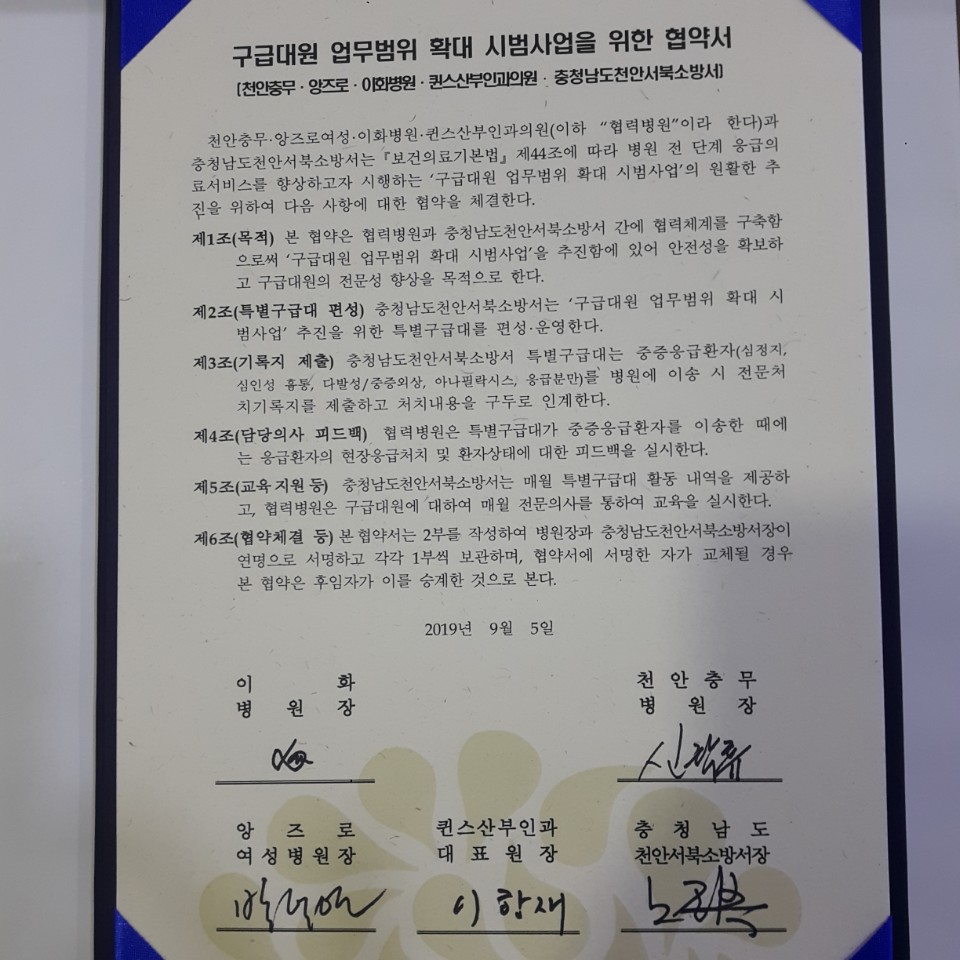 구급대원 업무범위 확대 시범사업을 위한 협약서
[천안충무 · 앙즈로 · 이화병원 · 퀸스산부인과의원 · 충청남도천안서북소방서]
천안충무·앙즈로여성·이화병원·퀸스산부인과의원(이하 “협력병원”이라 한다)과
충청남도천안서북소방서는 『보건의료기본법』 제44조에 따라 병원 전 단계 응급의
료서비스를 향상하고자 시행하는 ‘구급대원 업무범위 확대 시범사업’의 원활한 추
진을 위하여 다음 사항에 대한 협약을 체결한다.
제1조(목적) 본 협약은 협력병원과 충청남도천안서북소방서 간에 협력체계를 구축함
으로써 ‘구급대원 업무범위 확대 시범사업’을 추진함에 있어 안전성을 확보하
고 구급대원의 전문성 향상을 목적으로 한다.
제2조(특별구급대 편성) 충청남도천안서북소방서는 ‘구급대원 업무범위 확대 시
범사업’ 추진을 위한 특별구급대를 편성·운영한다.
제3조(기록지 제출) 충청남도천안서북소방서 특별구급대는 중증응급환자(심정지,
심인성 흉통, 다발성/중증외상, 아나필락시스, 응급분만)를 병원에 이송 시 전문처
치기록지를 제출하고 처치내용을 구두로 인계한다.
제4조(담당의사 피드백) 협력병원은 특별구급대가 중증응급환자를 이송한 때에
는 응급환자의 현장응급처치 및 환자상태에 대한 피드백을 실시한다.
제5조(교육 지원 등) 충청남도천안서북소방서는 매월 특별구급대 활동 내역을 제공하
고, 협력병원은 구급대원에 대하여 매월 전문의사를 통하여 교육을 실시한다.
제6조(협약체결 등) 본 협약서는 2부를 작성하여 병원장과 충청남도천안서북소방서장이
연명으로 서명하고 각각 1부씩 보관하며, 협약서에 서명한 자가 교체될 경우
본 협약은 후임자가 이를 승계한 것으로 본다.
2019년 9월 5일
이 화 천 안 충 무
병 원 장 병 원 장
앙 즈 로 퀸스산부인과 충 청 남 도
여성병원장 대 표 원 장 천안서북소방서장
이항재